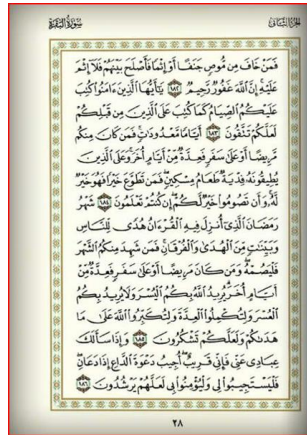 الجزء الثاني
سورة البقرة
فَمَنْ خَافَ مِن مُّوصٍ جَنَفًا أَوْ إِثْمًا فَأَصْلَحَ بَيْنَهُمْ فَلَا إِثْمَ
عَلَيْهِ إِنَّ اللَّهَ غَفُورٌ رَّحِيمٌ ١٨٢ يَا أَيُّهَا الَّذِينَ ءَامَنُوا كُتِبَ
عَلَيْكُمُ الصِّيَامُ كَمَا كُتِبَ عَلَى الَّذِينَ مِن قَبْلِكُمْ
لَعَلَّكُمْ تَتَّقُونَ ١٨٣ أَيَّامًا مَّعْدُودَاتٍ فَمَن كَانَ مِنكُم
مَّرِيضًا أَوْ عَلَى سَفَرٍ فَعِدَّةٌ مِّنْ أَيَّامٍ أُخَرَ وَعَلَى الَّذِينَ
يُطِيقُونَهُ فِدْيَةٌ طَعَامُ مِسْكِينٍ فَمَن تَطَوَّعَ خَيْرًا فَهُوَ خَيْرٌ
لَّهُ وَأَن تَصُومُوا خَيْرٌ لَّكُمْ إِن كُنتُمْ تَعْلَمُونَ ١٨٤ شَهْرُ
رَمَضَانَ الَّذِي أُنزِلَ فِيهِ الْقُرْءَانُ هُدًى لِّلنَّاسِ
وَبَيِّنَاتٍ مِّنَ الْهُدَى وَالْفُرْقَانِ فَمَن شَهِدَ مِنكُمُ الشَّهْرَ
فَلْيَصُمْهُ وَمَن كَانَ مَرِيضًا أَوْ عَلَى سَفَرٍ فَعِدَّةٌ مِّنْ
أَيَّامٍ أُخَرَ يُرِيدُ اللَّهُ بِكُمُ الْيُسْرَ وَلَا يُرِيدُ بِكُمُ
الْعُسْرَ وَلِتُكْمِلُوا الْعِدَّةَ وَلِتُكَبِّرُوا اللَّهَ عَلَى مَا
هَدَاكُمْ وَلَعَلَّكُمْ تَشْكُرُونَ ١٨٥ وَإِذَا سَأَلَكَ
عِبَادِي عَنِّي فَإِنِّي قَرِيبٌ أُجِيبُ دَعْوَةَ الدَّاعِ إِذَا دَعَانِ
فَلْيَسْتَجِيبُوا لِي وَلْيُؤْمِنُوا بِي لَعَلَّهُمْ يَرْشُدُونَ ١٨٦
٢٨